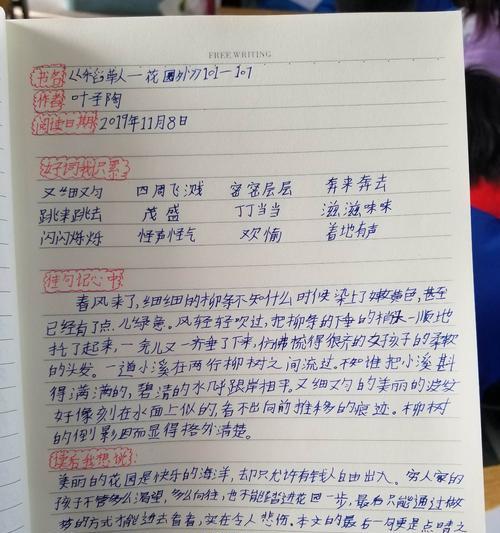 FREE WRITING
书名 《稻草人—花园外》101—107
作者 叶圣陶
阅读日期 2019年11月8日
好词我只累
又细又匀 四周飞溅 密密层层 奔来奔去
跳来跳去 茂盛 丁丁当当 滋滋味味
闪闪烁烁 怪声怪气 欢愉 着地有声
佳句记心中
春风来了,细细的柳条不知什么时候染上了嫩黄色,甚至
已经有了点儿绿意。风轻轻吹过,把柳条的下垂的梢头一顺地
托了起来,一会儿又一齐垂了下来,仿佛梳得很齐的女孩子的柔软
的头发。一道小溪在两行柳树之间流过。不知谁把小溪斟
得满满的,碧清的水几乎跟岸相平。又细又匀的美丽的波纹
好像刻在水面上似的,看不出向前推移的痕迹。柳树
的倒影因而显得格外清楚。
读后我想说:
美丽的花园是快乐的海洋,却只允许有钱人自由出入。穷人家的
孩子不管多么渴望,多么向往,也不能踏进花园一步,最后只能通过做
梦的方式才能进去看看,实在令人悲伤。本文的最后一句更是点睛之